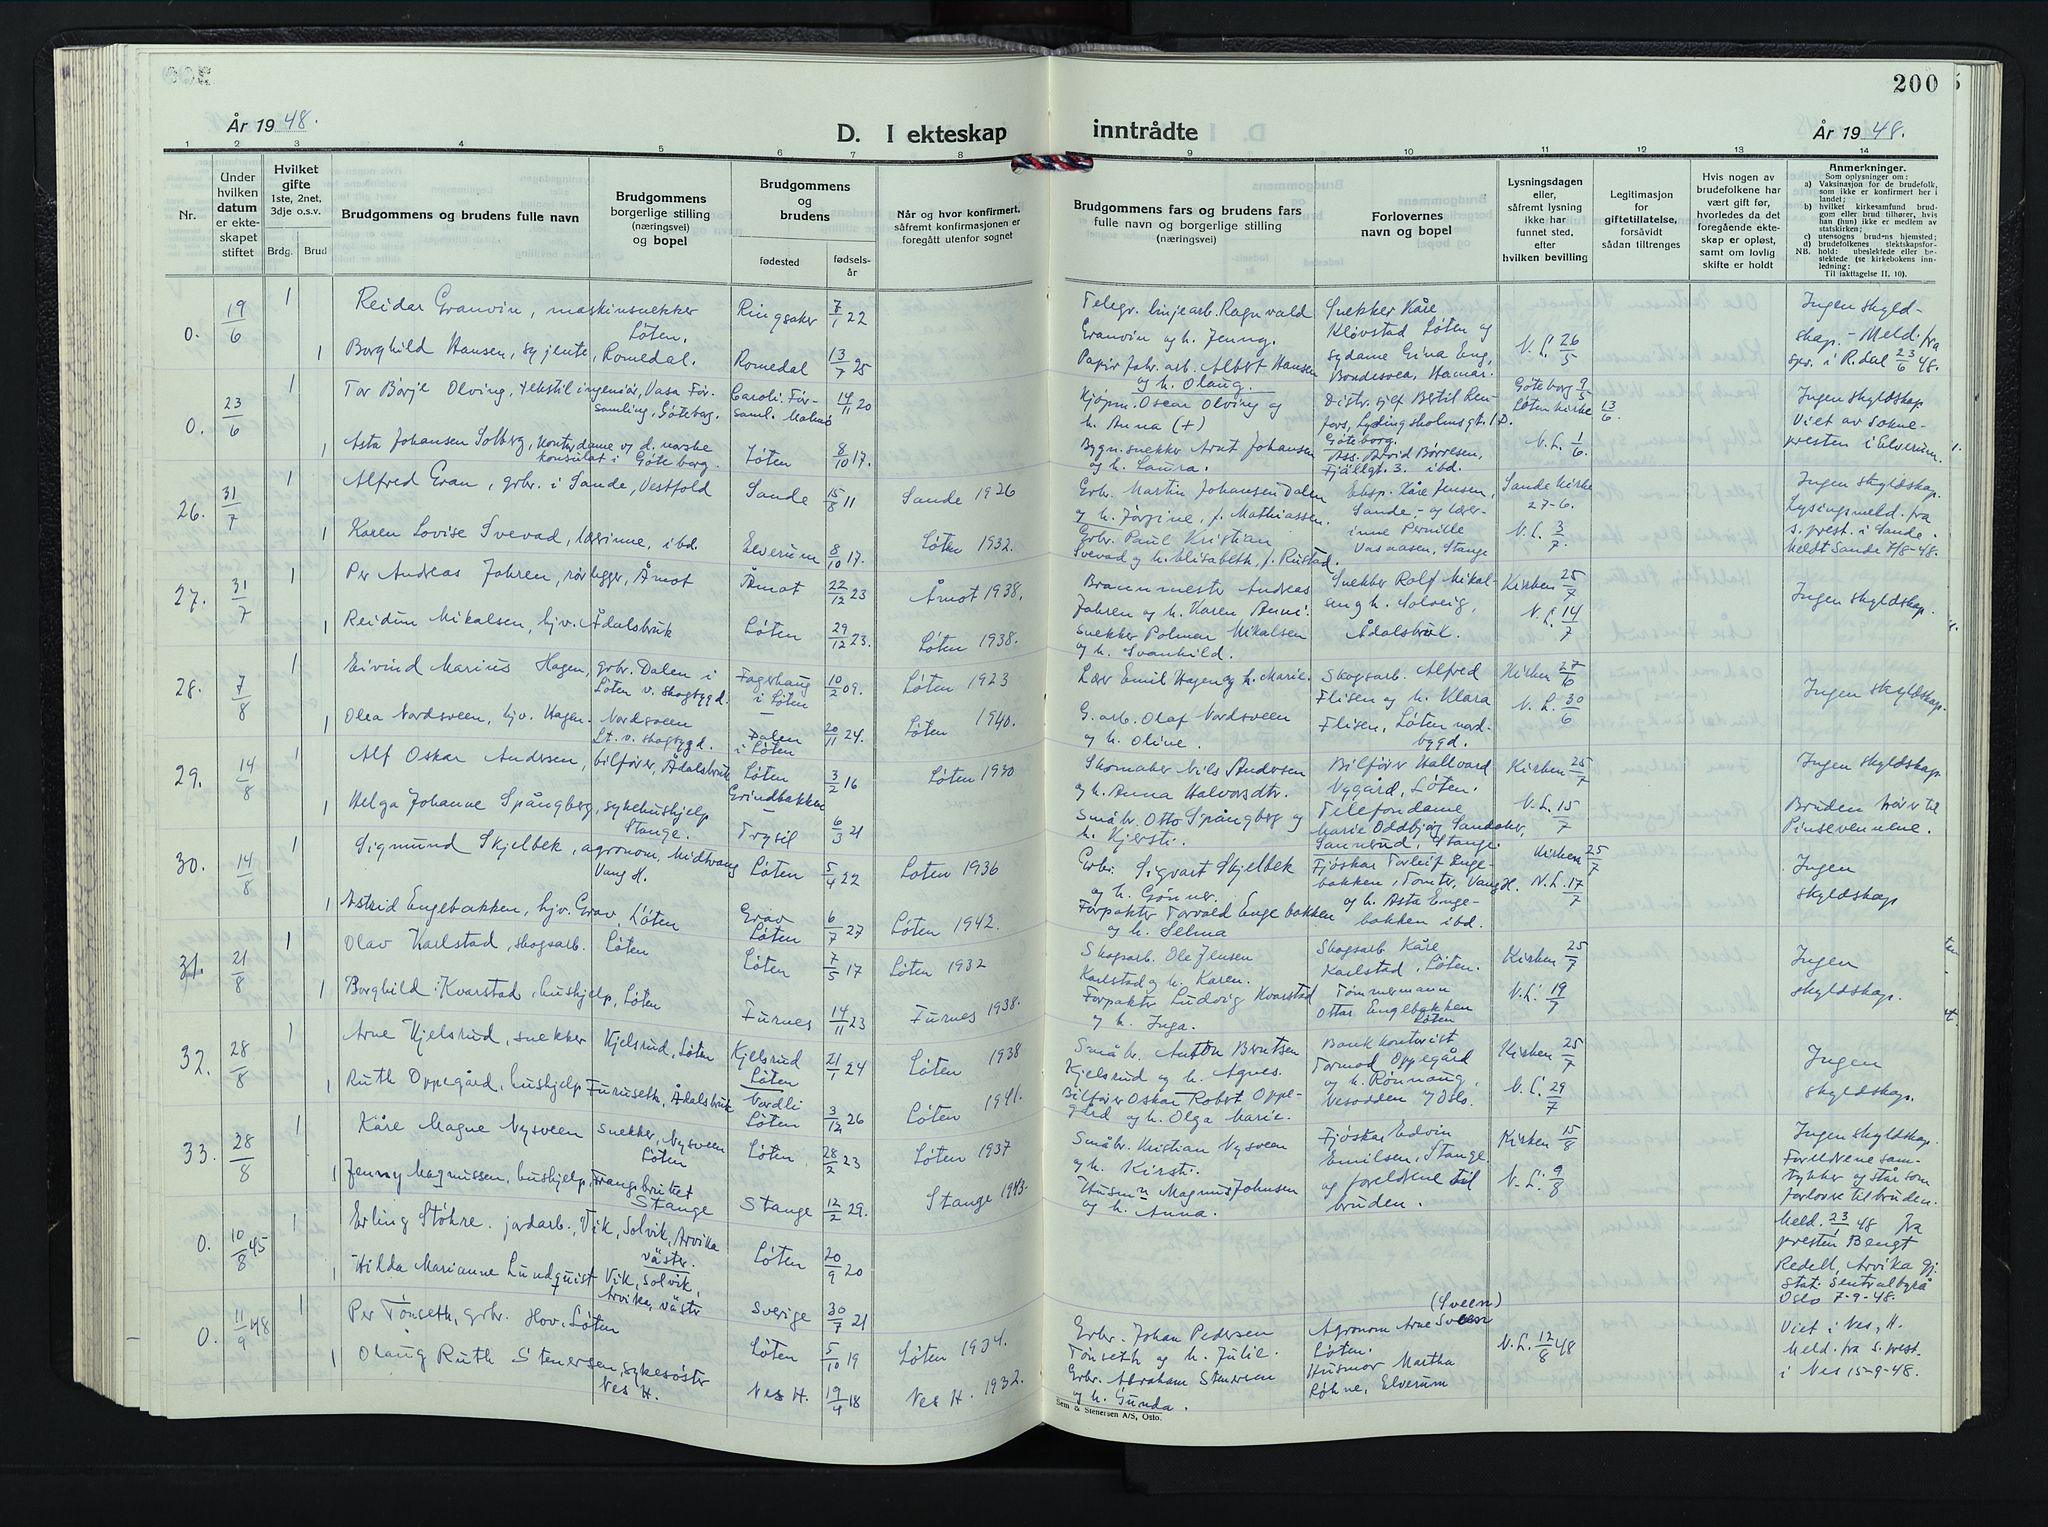 År 1948.
D. I ekteskap
inntrådte
200
År 1948.
1 2 3 4 5 6 7 8 9 10 11 12 13 14
Nr.
Under
hvilken
datum
er ekte-
skapet
stiftet
Hvilket
gifte
1ste, 2net,
3dje o.s.v.
Brdg. Brud
Brudgommens og brudens fulle navn
Brudgommens
borgerlige stilling
(næringsvei)
og bopel
Brudgommens
og
brudens
fødested
fødsels-
år
Når og hvor konfirmert,
såfremt konfirmasjonen er
foregått utenfor sognet
Brudgommens fars og brudens fars
fulle navn og borgerlige stilling
(næringsvei)
Forlovernes
navn og bopel
Lysningsdagen
eller,
såfremt lysning
ikke har
funnet sted,
efter
hvilken bevilling
Legitimasjon
for
giftetillatelse,
forsåvidt
sådan tiltrenges
Hvis nogen av
brudefolkene har
vært gift før,
hvorledes da det
foregående ekte-
skap er opløst,
samt om lovlig
skifte er holdt
Anmerkninger.
Som oplysninger om:
a) Vaksinasjon for de brudefolk,
som ikke er konfirmert her i
landet;
b) hvilket kirkesamfund brud-
gom eller brud tilhører, hvis
han (hun) ikke er medlem av
statskirken;
c) utensogns brudens hjemsted;
d) brudefolkenes slektskapsfor-
hold: ubeslektede eller be-
slektede (se kirkebokens inn-
ledning;
NB. Til iakttagelse II, 10).
0. 19/6 1 Reidar Granvin, maskinsnekker
Løten. Ringsaker 7/1 22
1 Borghild Hansen, syjente, Romedal. Romedal 13/7 25
Telegr. linjearb. Ragnvald
Granvin og h. Jenny.
Papirfabr. arb. Albert Hansen
og h. Olaug.
Snekker Kåre
Kløvstad Løten og
sydame Gina Eng,
Bondesvea, Hamar.
N.L. 26/5
Ingen skyld-
skap. - Meld. fra
spr. i R.dal 23/6 48.
0. 23/6 1 Tor Börje Olving, tekstilingeniør, Vasa För-
samling, Göteborg. Caroli För-
saml. Malmö 14/11 20
1 Asta Johansen Solberg, kontordame v/ d. norske
konsulat i Göteborg. Løten 8/10 17.
Kjøpm. Oscar Olving og
h. Anna (+)
Bygn. snekker Arnt Johansen
og h. Laura.
Göteborg.
Fjällgt. 3. ibd.
Göteborg 9/5
Løten kirke 13/6
N.L. 1/6
Ingen skyldskap
Viet av sokne-
presten i Elverum.
26. 31/7 1 Alfred Gran, gbr. i Sande, Vestfold Sande 15/8 11 Sande 1926
1 Karen Lovise Svevad, lærerinne, ibd. Elverum 8/10 17. Løten 1932.
Gbr. Martin Johansen Dalen
og h. Jørgine, f. Mathiassen.
Gbr. Paul Kristian
Svevad og h. Elisabeth, f. Rustad.
Eksp. Kåre Jensen,
Sande, - og lærer-
inne Pernille
Vasaasen, Stange
Sande kirke
27-6.
N.L. 3/7.
Ingen skyldskap.
Lysingsmeld. fra
s. prest. i Sande.
Meldt Sande 8/8-48.
27. 31/7 1 Per Andreas Jahren, rørlegger, Åmot Åmot 22/12 23 Åmot 1938.
1 Reidun Mikalsen, hjv. Ådalsbruk Løten 29/12 23. Løten 1938.
Brannmester Andreas
Jahren og h. Karen Anni.
Snekker Polmar Mikalsen
og h. Svanhild.
Snekker Rolf Mikal-
sen og h. Solveig,
Ådalsbruk.
Kirken 25/7
N.L. 14/7
Ingen skyldskap.
28. 7/8 1 Eivind Marius Hagen, gbr. Dalen i
Løten v. skogbygd. Fagerhaug
i Løten 10/2 09. Løten 1923
1 Olea Nordsveen, hjv. Hagen. Nordsveen
Lt. v. skogbygd. Dalen
i Løten 20/11 24. Løten 1940.
Lærer Emil Hagen og h. Marie.
G. arb. Olaf Nordsveen
og h. Oline.
Skogsarb. Alfred
Flisen og h. Klara
Flisen, Løten nord-
bygd.
Kirken 27/6
N.L. 30/6
Ingen skyldskap.
29. 14/8 1 Alf Oskar Andersen, bilfører, Ådalsbruk Løten
Grindbakken 3/2 16 Løten 1930
1 Helga Johanne Spångberg, sykehushjelp
Stange. Trysil 6/3 21
Skomaker Nils Andersen
og h. Anna Halvorsdtr.
Småbr. Otto Spångberg og
h. Kjersti.
Bilfører Hallvard
Nygård, Løten.
Telefondame
Marie Oddbjøg Sandaker,
Sannerud, Stange.
Kirken 25/7
N.L. 15/7
Ingen skyldskap.
Bruden hører til
Pinsevennene.
30. 14/8 1 Sigmund Skjelbek, agronom, Midtvang
Vang H. Løten 5/4 22 Løten 1936
1 Astrid Engebakken, hjv. Grav, Løten Grav
Løten 6/7 27 Løten 1942.
Gbr. Sigvart Skjelbek
og h. Gønner.
Forpakter Torvald Engebakken
og h. Selma
Fjøskar Torleif Enge-
bakken, Tomter, Vang H.
og h. Asta Enge-
bakken ibd.
Kirken 25/7
N.L. 17/7
Ingen
skyldskap
31. 21/8 1 Olav Karlstad, skogsarb. Løten Løten 7/5 17 Løten 1932
1 Borghild Kvarstad, hushjelp, Løten Furnes 14/11 23 Furnes 1938.
Skogsarb. Ole Jensen
Karlstad og h. Karen.
Forpakter Ludvig Kvarstad
og h. Inga.
Skogsarb. Kåre
Karlstad, Løten.
Tømmermann
Ottar Engebakken
Løten
Kirken 25/7
N.L. 19/7
Ingen
skyldskap.
32. 28/8 1 Arne Kjelsrud, snekker Kjelsrud, Løten Kjelsrud
Løten 21/1 24 Løten 1938
1 Ruth Oppegård, hushjelp Furuseth, Ådalsbruk Nordli
Løten 3/12 26 Løten 1941.
Småbr. Anton Berntsen
Kjelsrud og h. Agnes.
Bilfører Oskar Robert Oppe-
gård og h. Olga Marie.
Bankkontorist
Tormod Oppegård
og h. Rønnaug,
Nesodden v/ Oslo.
Kirken 25/7
N.L. 29/7
Ingen
skyldskap.
33. 28/8 1 Kåre Magne Nysveen snekker, Nysveen
Løten Løten 28/2 23 Løten 1937
1 Jenny Magnussen, hushjelp, Frangsbruket
Stange Stange 12/2 29. Stange 1943.
Småbr. Kristian Nysveen
og h. Kirsti.
Husm. Magnus Johnsen
og h. Anna.
Fjøskar Edvin
Emilsen, Stange
og foreldrene til
bruden.
Kirken 15/8
N.L. 9/8
Ingen skyldskap.
Foreldrene sam-
tykker og står som
forlovere til bruden.
0. 10/8 45 1 Erling Støhre. jordarb. Vik, Solvik, Arvika
väster. Løten 20/9 20
1 Hilda Marianne Lundquist Vik, Solvik,
Arvika, väster Sverige 30/7 21
Meld. 23/8 48 fra
presten Bengt
Redell, Arvika gj.
Stat. Sentralbyrå
Oslo 7-9-48.
0. 11/9 48 1 Per Tønseth, gbr. Hov, Løten Løten 5/10 19 Løten 1934.
1 Olaug Ruth Stenersen, sykesøster
Nes H. Nes H. 19/4 18 Nes H. 1932.
Gbr. Johan Pedersen
Tønseth og h. Julie.
Gbr. Abraham Stenersen
og h. Gunda.
(Sveen)
Agronom Arne Sveen
Løten.
Husmor Martha
Røhne, Elverum
N.L. 12/8 48
Viet i Nes, H.
Meld. fra s. prest.
i Nes 15-9-48.
Sem & Stenersen A/S, Oslo.